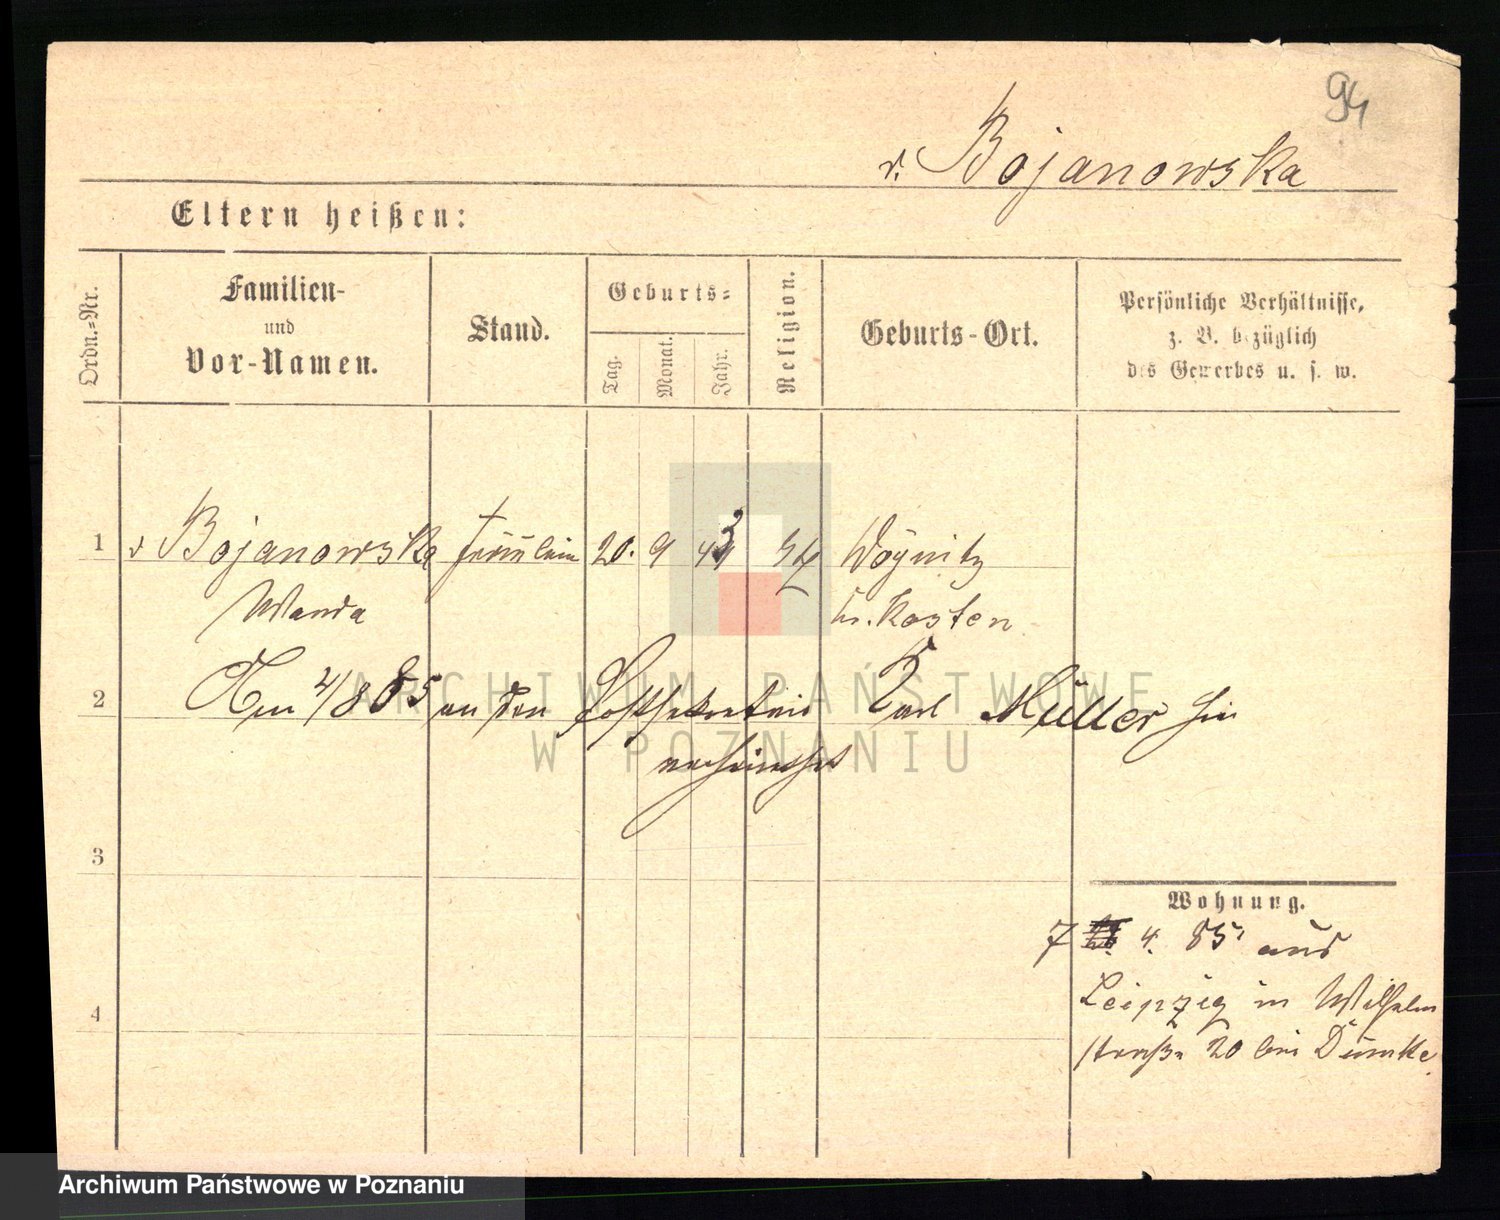 94
v. Bojanowska
Eltern heißen:
Ordn.-Nr.
Familien-
und
Vor-Namen.
Stand.
Geburts-
Tag.
Monat.
Jahr.
Religion.
Geburts-Ort.
Persönliche Verhältnisse,
z. B. bezüglich
des Gewerbes u. s. w.
1 v Bojanowska Fräulein 20. 9 43 Woynitz
Wanda Kr. Kosten
2 Am 4/8 85 an den Postsekretair Karl Müller hier
verheirathet
3
Wohnung.
7 4. 85 aus
Leipzig in Wilhelm
4
straße 20 bei Dümke
ARCHIWUM PAŃSTWOWE
W POZNANIU
Archiwum Państwowe w Poznaniu